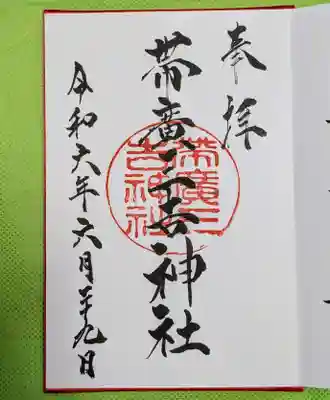 奉拝
帯廣三吉神社
帯廣三
吉神社
令和六年六月二十九日